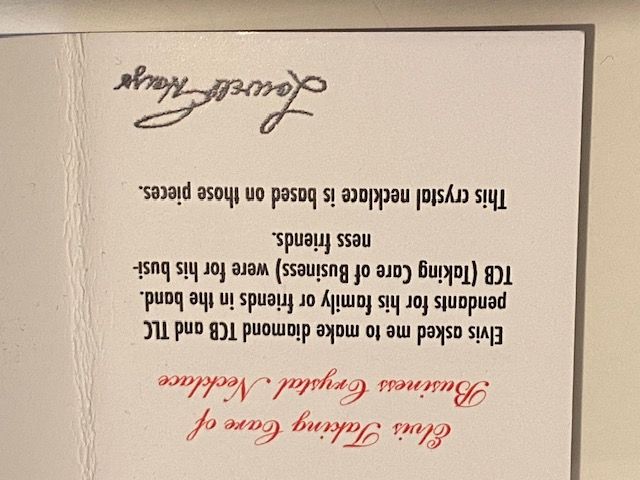 Elvis Taking Care of
Business Crystal Necklace
Elvis asked me to make diamond TCB and TLC
pendants for his family or friends in the band.
TCB (Taking Care of Business) were for his busi-
ness friends.
This crystal necklace is based on those pieces.
Lowell Hays